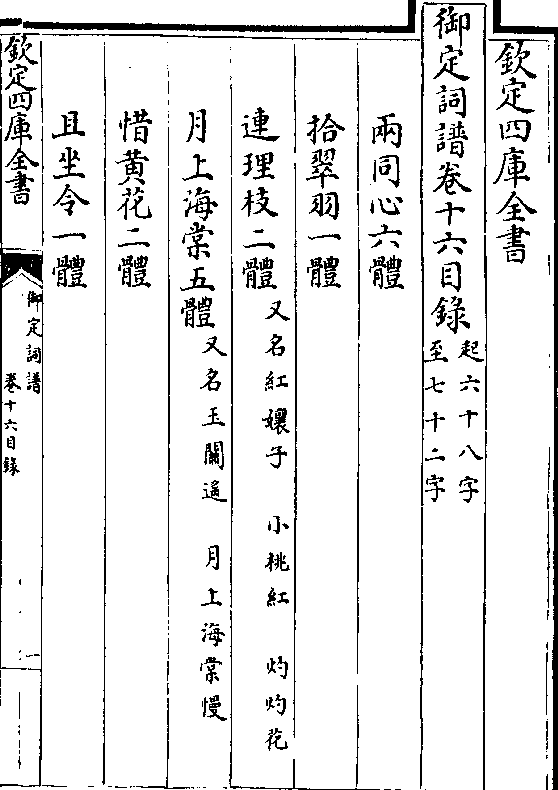 欽定四庫全書
御定詞譜卷十六目錄 起六十八字
至七十二字
兩同心六體
拾翠羽一體
連理枝二體 又名紅孃子 小桃紅 灼灼花
月上海棠五體 又名玉關遥 月上海棠慢
惜黃花二體
且坐令一體
欽定四庫全書
御定詞譜
卷十六目錄
一